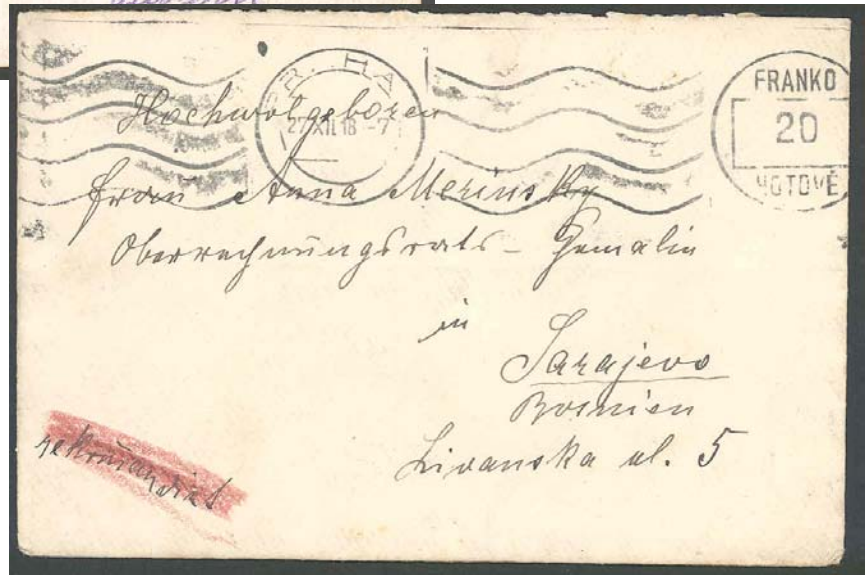 PRAHA
27 XII 18 -7
FRANKO
20
HOTOVĚ
Hochwolgeboren
Frau Anna Merinsky
Oberrechnungsrats - Gemalin
in
Sarajevo
Bosnien
Livanska ul. 5
rekomandirt